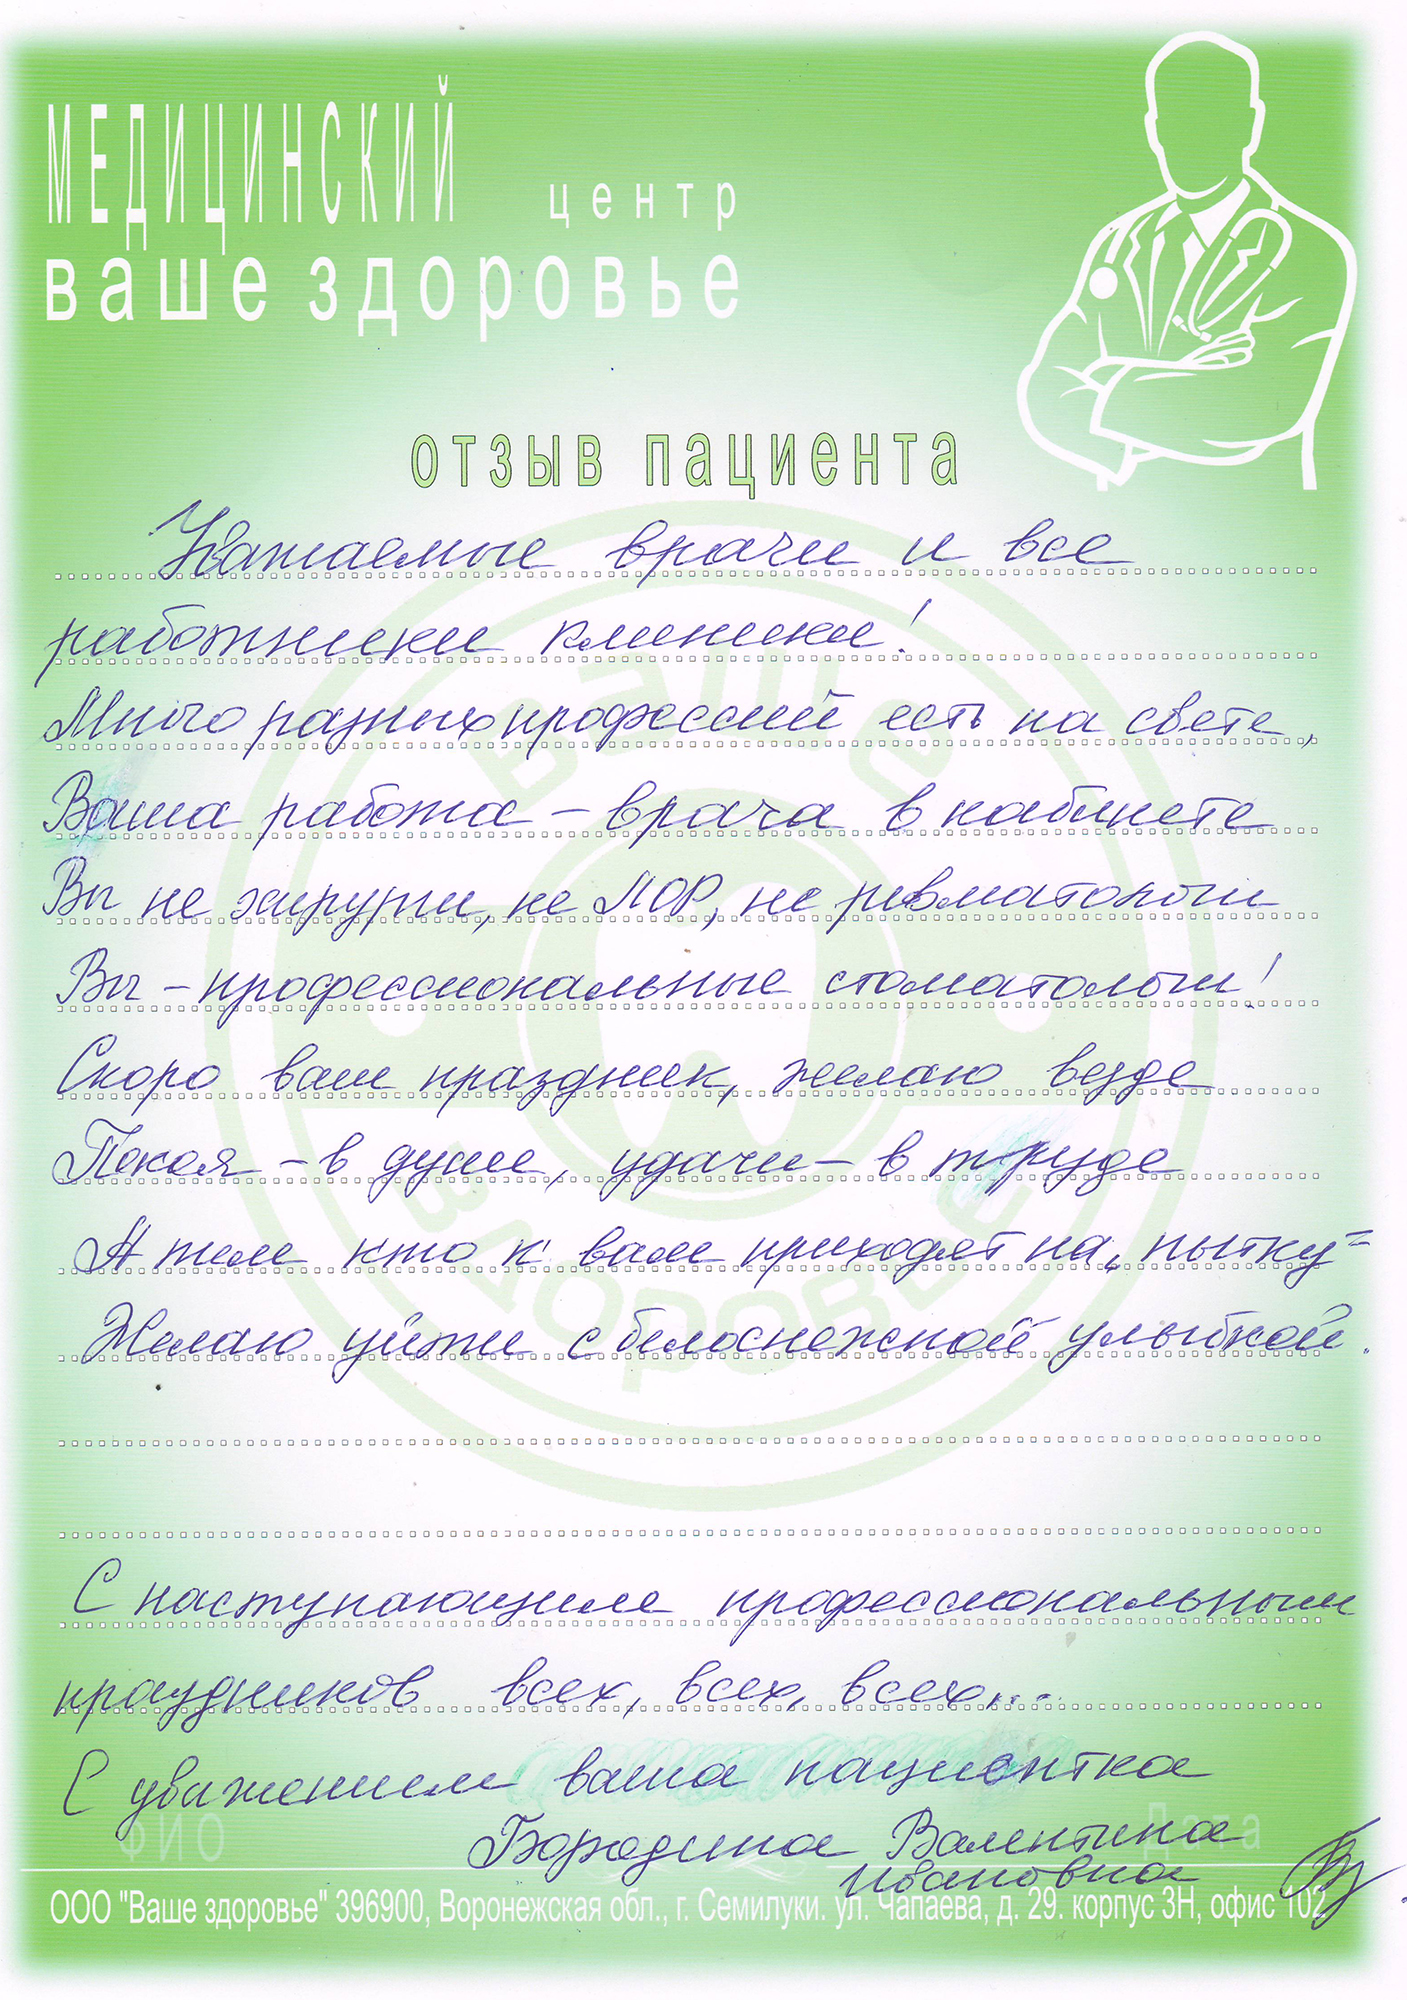 МЕДИЦИНСКИЙ центр
ваше здоровье
отзыв пациента
Уважаемые врачи и все
работники клиники!
Много разных профессий есть на свете,
Ваша работа – врача в кабинете
Вы не хирурги, не ЛОР, не ревматологи
Вы – профессиональные стоматологи!
Скоро ваш праздник, желаю везде
Покоя – в душе, удачи – в труде
А тем кто к вам приходят на „пытку“
Желаю уйти с белоснежной улыбкой.
С наступающим профессиональным
праздников всех, всех, всех...
С уважением ваша пациентка
Бородина Валентина
Ивановна
ФИО
Дата
ООО "Ваше здоровье" 396900, Воронежская обл., г. Семилуки. ул. Чапаева, д. 29. корпус 3Н, офис 102
ваше
здоровье